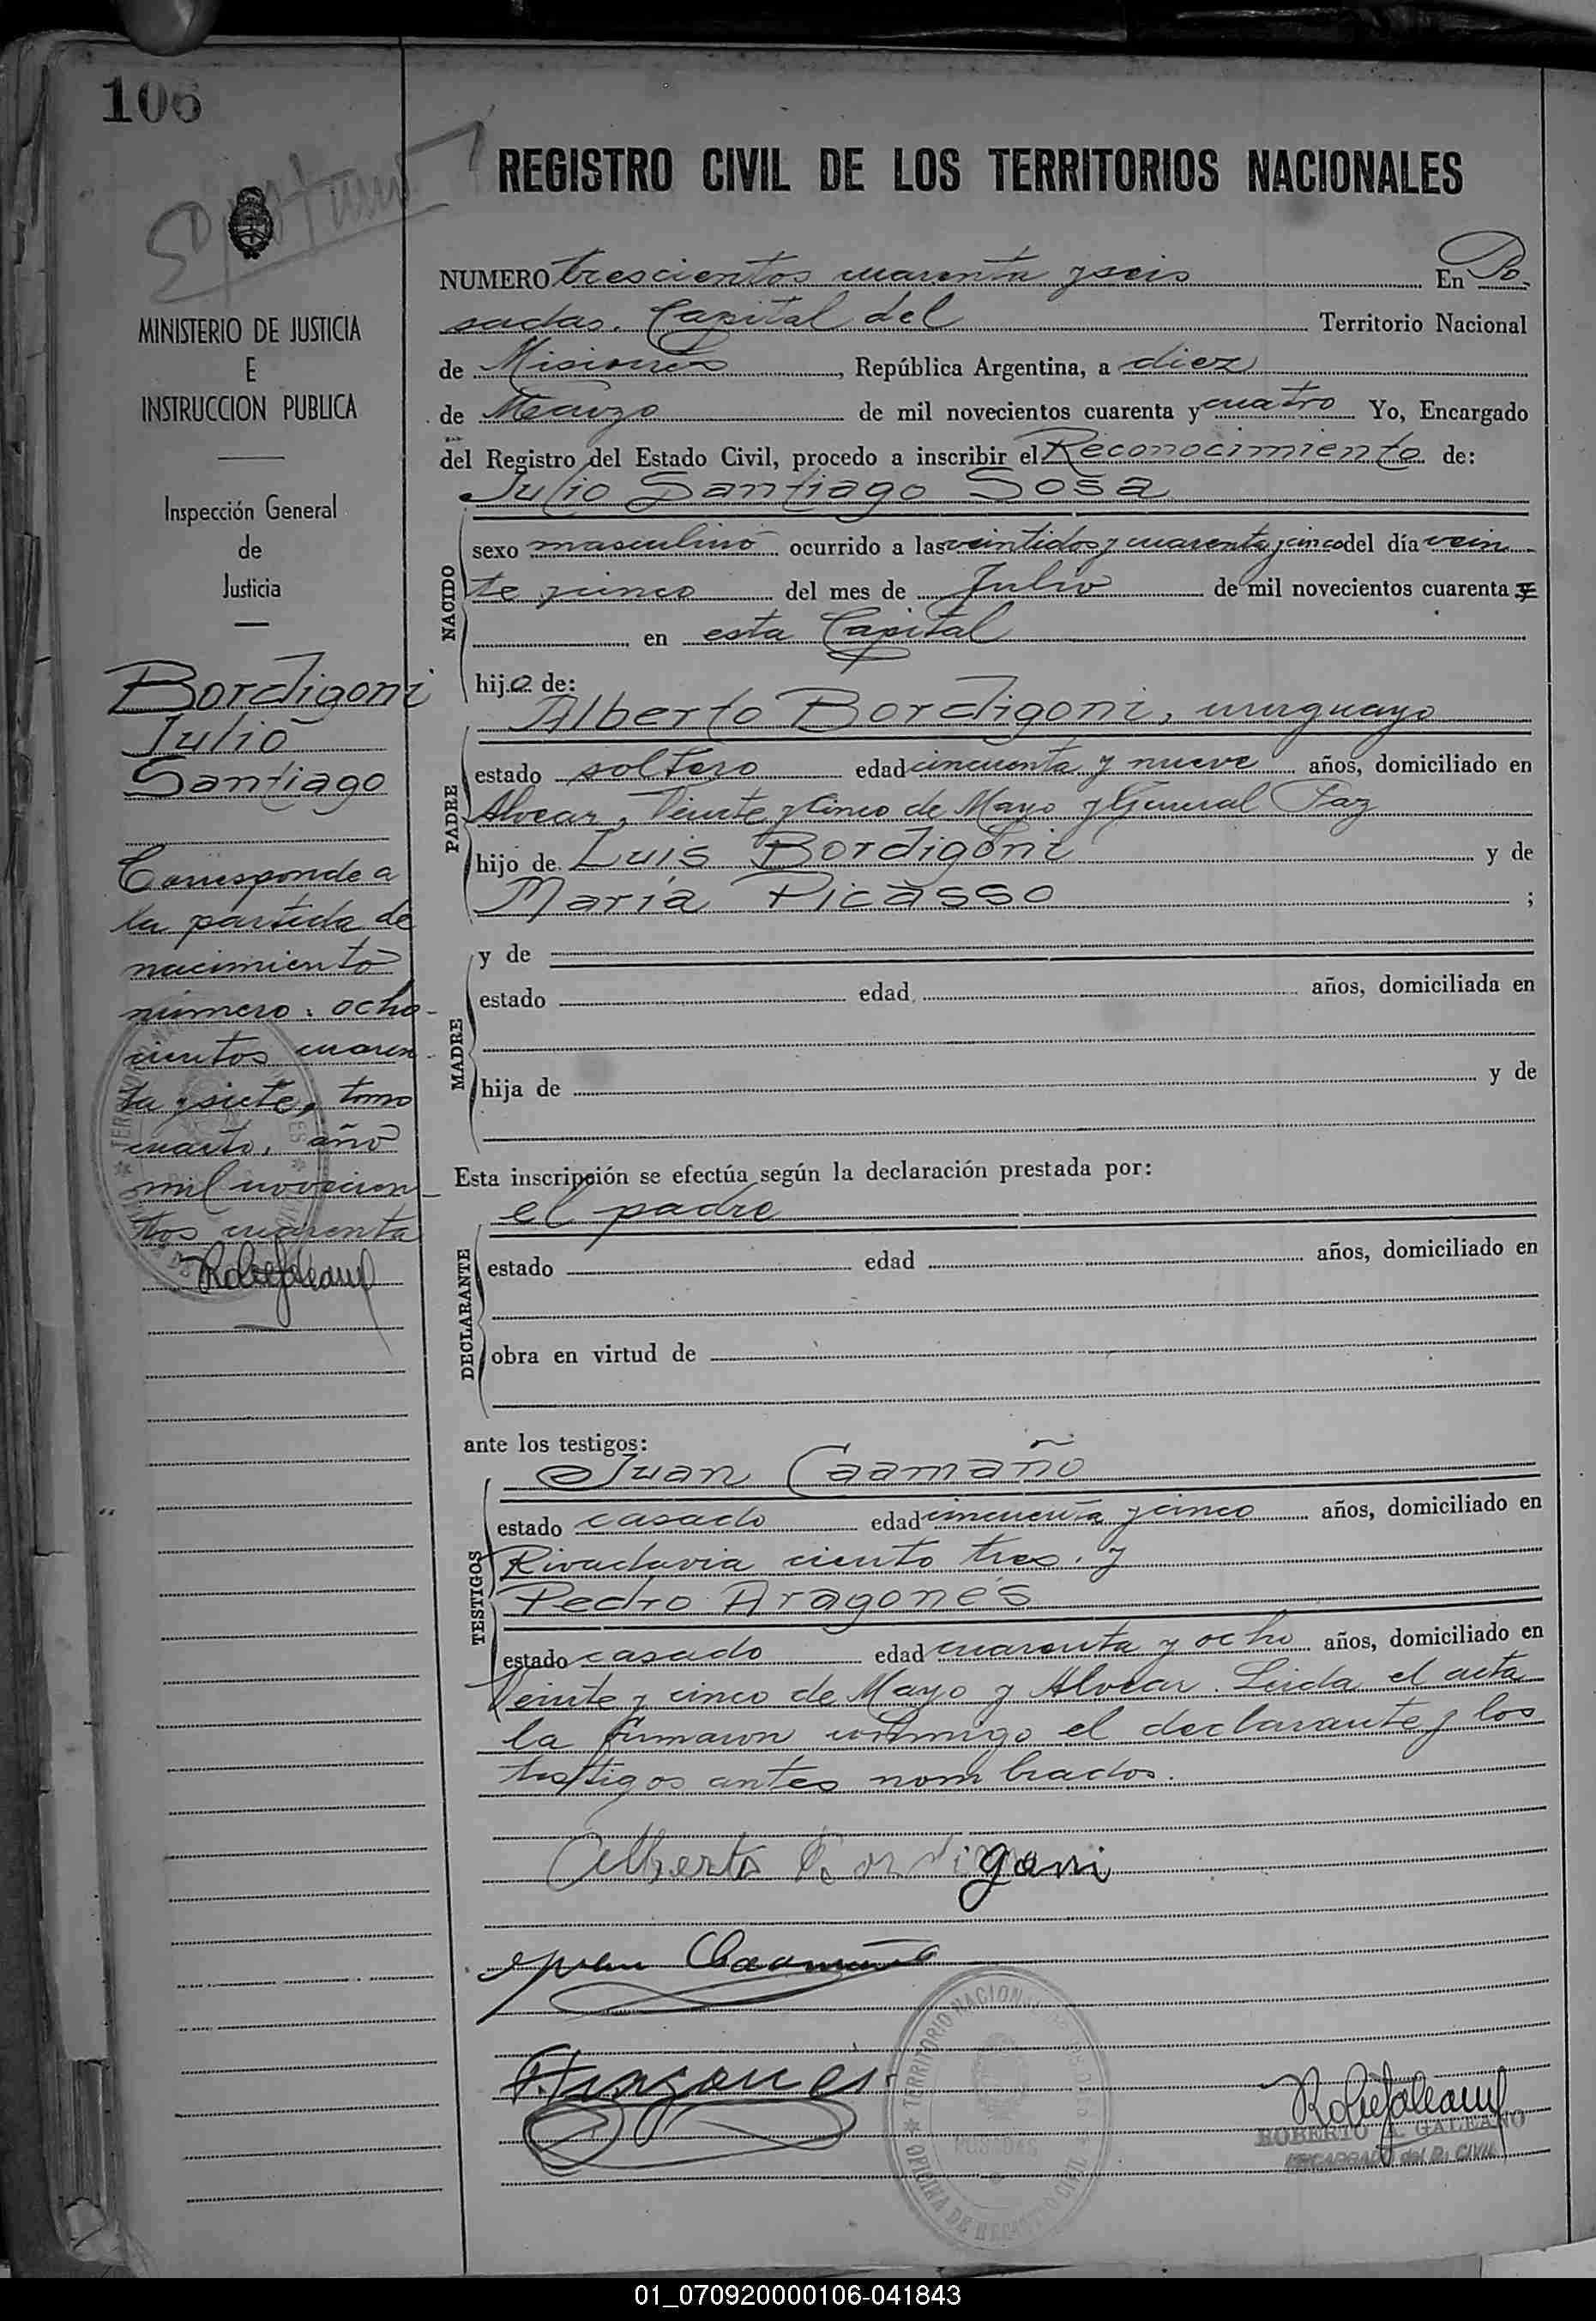 106
REGISTRO CIVIL DE LOS TERRITORIOS NACIONALES
MINISTERIO DE JUSTICIA
E
INSTRUCCION PUBLICA
Inspección General
de
Justicia
Bordigoni
Julio
Santiago
Corresponde a
la partida de
nacimiento
número: ocho-
cientos cuaren-
ta y siete, tomo
cuarto, año
mil novecien-
tos cuarenta
NUMERO trescientos cuarenta y seis En Po-
sadas. Capital del Territorio Nacional
de Misiones, República Argentina, a diez
de Marzo de mil novecientos cuarenta y cuatro Yo, Encargado
del Registro del Estado Civil, procedo a inscribir el Reconocimiento de:
Julio Santiago Sosa
NACIDO
sexo masculino ocurrido a las veintidos y cuarenta y cinco del día vein-
te y cinco del mes de Julio de mil novecientos cuarenta y
en esta Capital
hijo de:
Alberto Bordigoni, uruguayo
PADRE
estado soltero edad cincuenta y nueve años, domiciliado en
Alvear, Veinte y Cinco de Mayo y General Paz
hijo de Luis Bordigoni y de
María Picasso ;
MADRE
y de
estado edad años, domiciliada en
hija de y de
Esta inscripción se efectúa según la declaración prestada por:
el padre
DECLARANTE
estado edad años, domiciliado en
obra en virtud de
ante los testigos:
Juan Caamaño
TESTIGOS
estado casado edad cincuenta y cinco años, domiciliado en
Rivadavia ciento tres. y
Pedro Aragonés
estado casado edad cuarenta y ocho años, domiciliado en
Veinte y cinco de Mayo y Alvear. Leida el acta
la firmaron conmigo el declarante y los
testigos antes nombrados.
Alberto Bordigoni
Juan Caamaño
P. Aragonés
TERRITORIO NACIONAL
POSADAS
OFICINA DE REGISTRO CIVIL
ROBERTO A. GALEANO
ENCARGADO del R. CIVIL
01_070920000106-041843